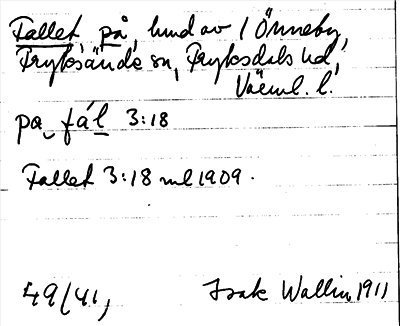 Fallet, på, hmd av 1 Önneby,
Fryksände sn, Fryksdals hd,
Värml. l.
pa fál 3:18
Fallet 3:18 ml 1909.
49/41, Isak Wallin 1911